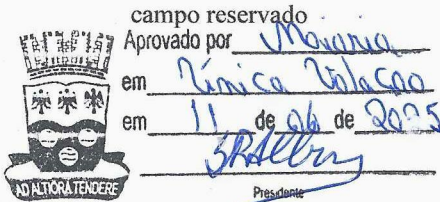 campo reservado
Aprovado por Maioria
em Única Votação
em 11 de 06 de 2025
Presidente
AD ALTIORA TENDERE